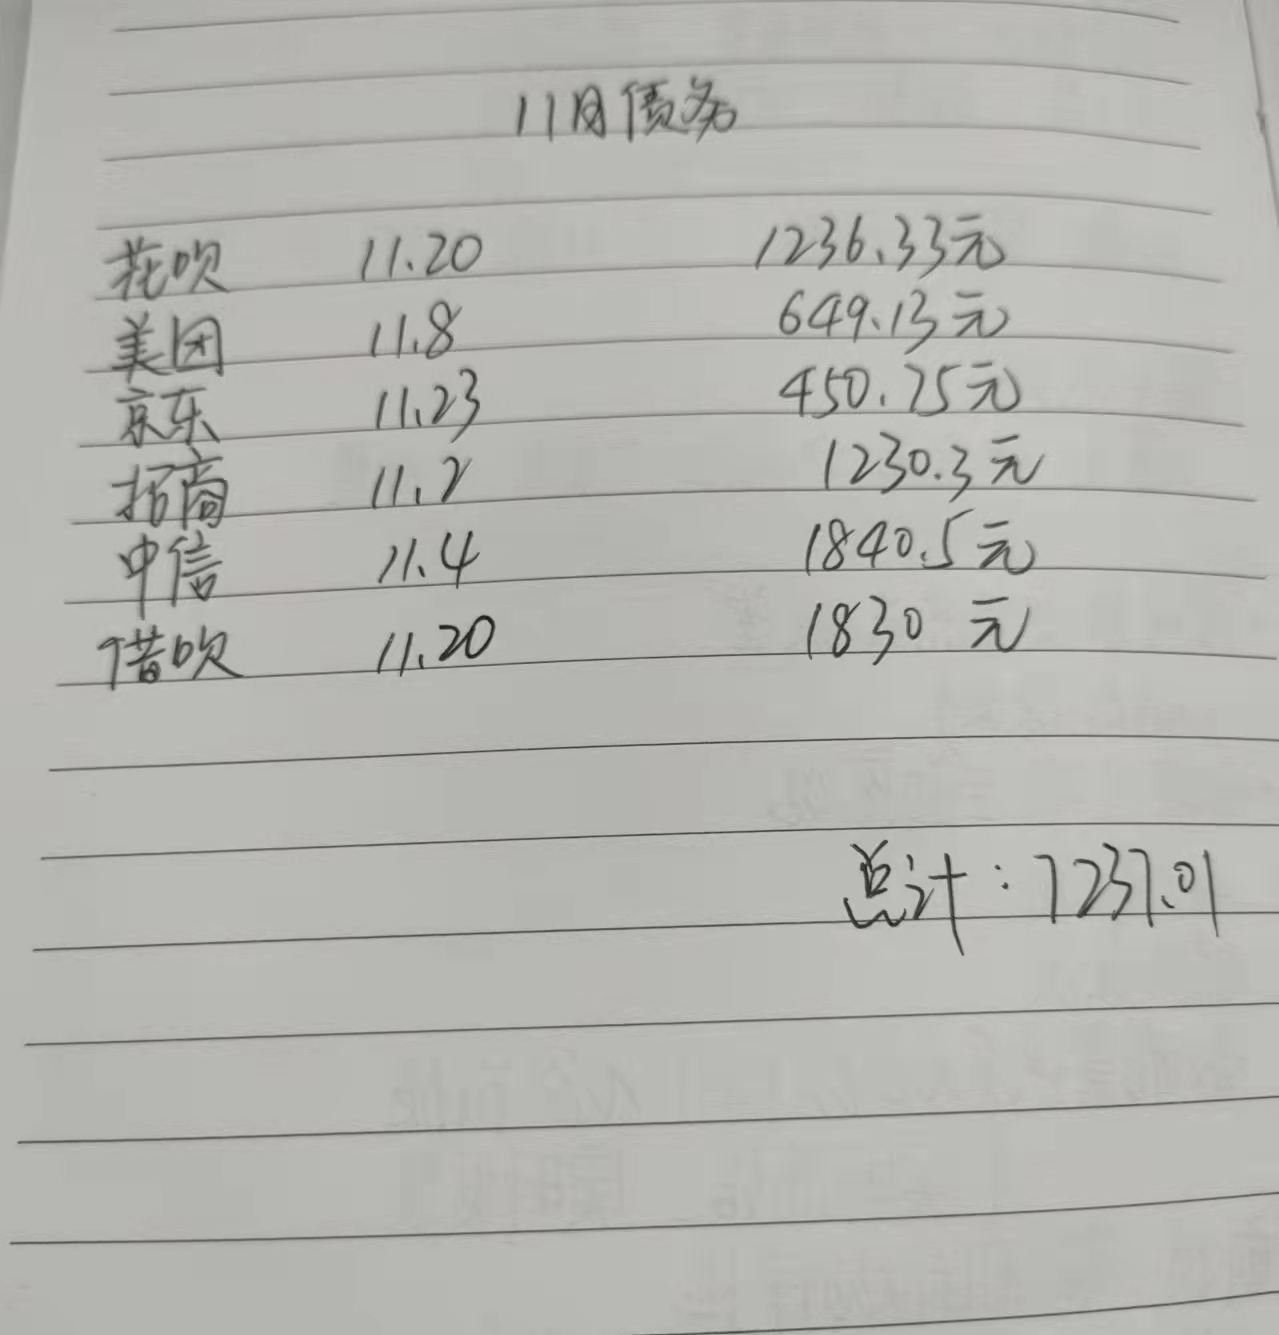 11月债务
花呗 11.20 1236.33元
美团 11.8 649.13元
京东 11.23 450.75元
招商 11.2 1230.3元
中信 11.4 1840.5元
借呗 11.20 1830元
总计：7237.01